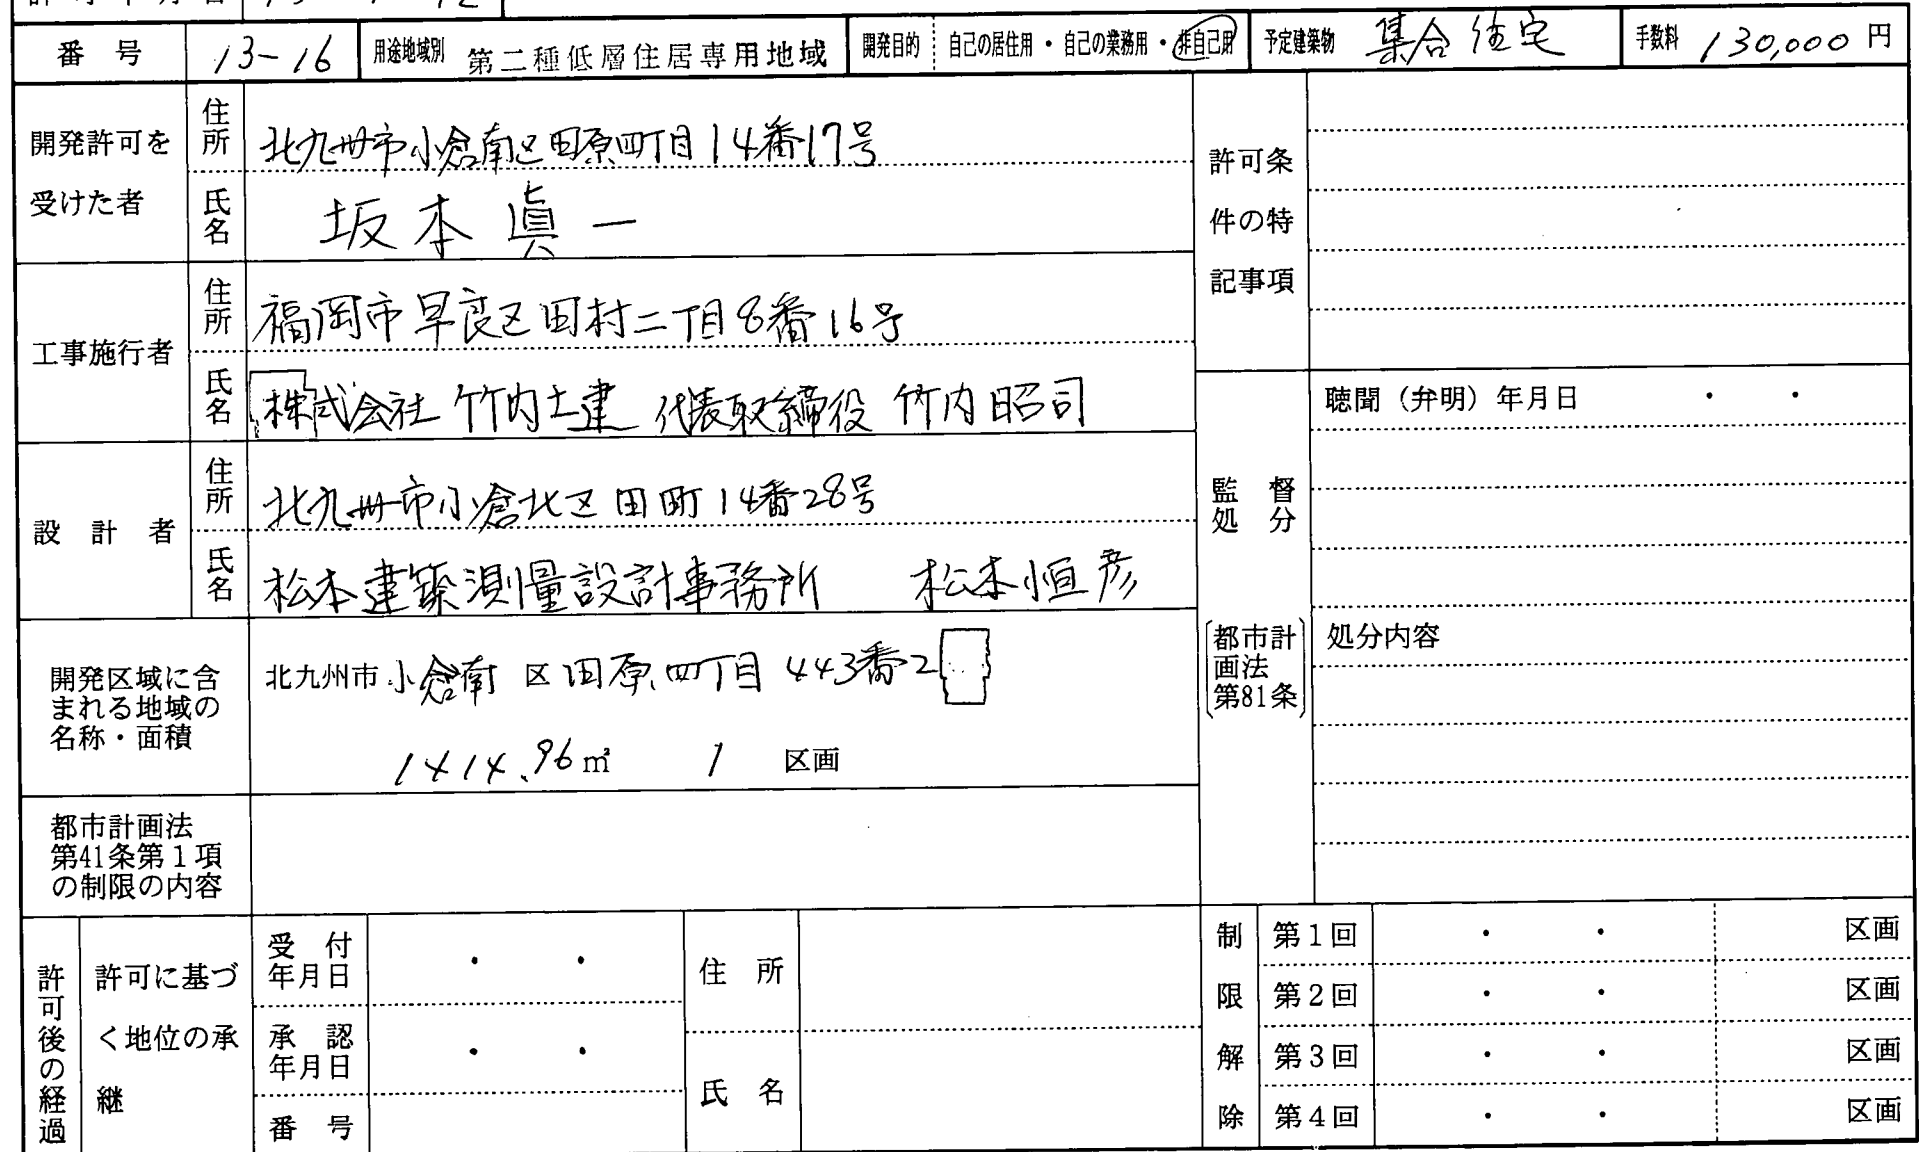 番号 13-16 用途地域別 第二種低層住居専用地域 開発目的 自己の居住用・自己の業務用・非自己用 予定建築物 集合住宅 手数料 130,000円
開発許可を受けた者
住所 北九州市小倉南区田原四丁目14番17号
氏名 坂本眞一
工事施行者
住所 福岡市早良区田村二丁目8番16号
氏名 株式会社竹内土建 代表取締役 竹内昭司
設計者
住所 北九州市小倉北区田町14番28号
氏名 松本建築測量設計事務所 松本恒彦
開発区域に含
まれる地域の
名称・面積
北九州市小倉南区田原四丁目443番2
1414.96㎡ 1区画
都市計画法
第41条第1項
の制限の内容
許可条
件の特
記事項
監督
処分
都市計
画法
第81条
聴聞（弁明）年月日 ・ ・
処分内容
許可後の経過
許可に基づ
く地位の承
継
受付
年月日 ・ ・
承認
年月日 ・ ・
番号
住所
氏名
制限解除
第1回 ・ ・ 区画
第2回 ・ ・ 区画
第3回 ・ ・ 区画
第4回 ・ ・ 区画